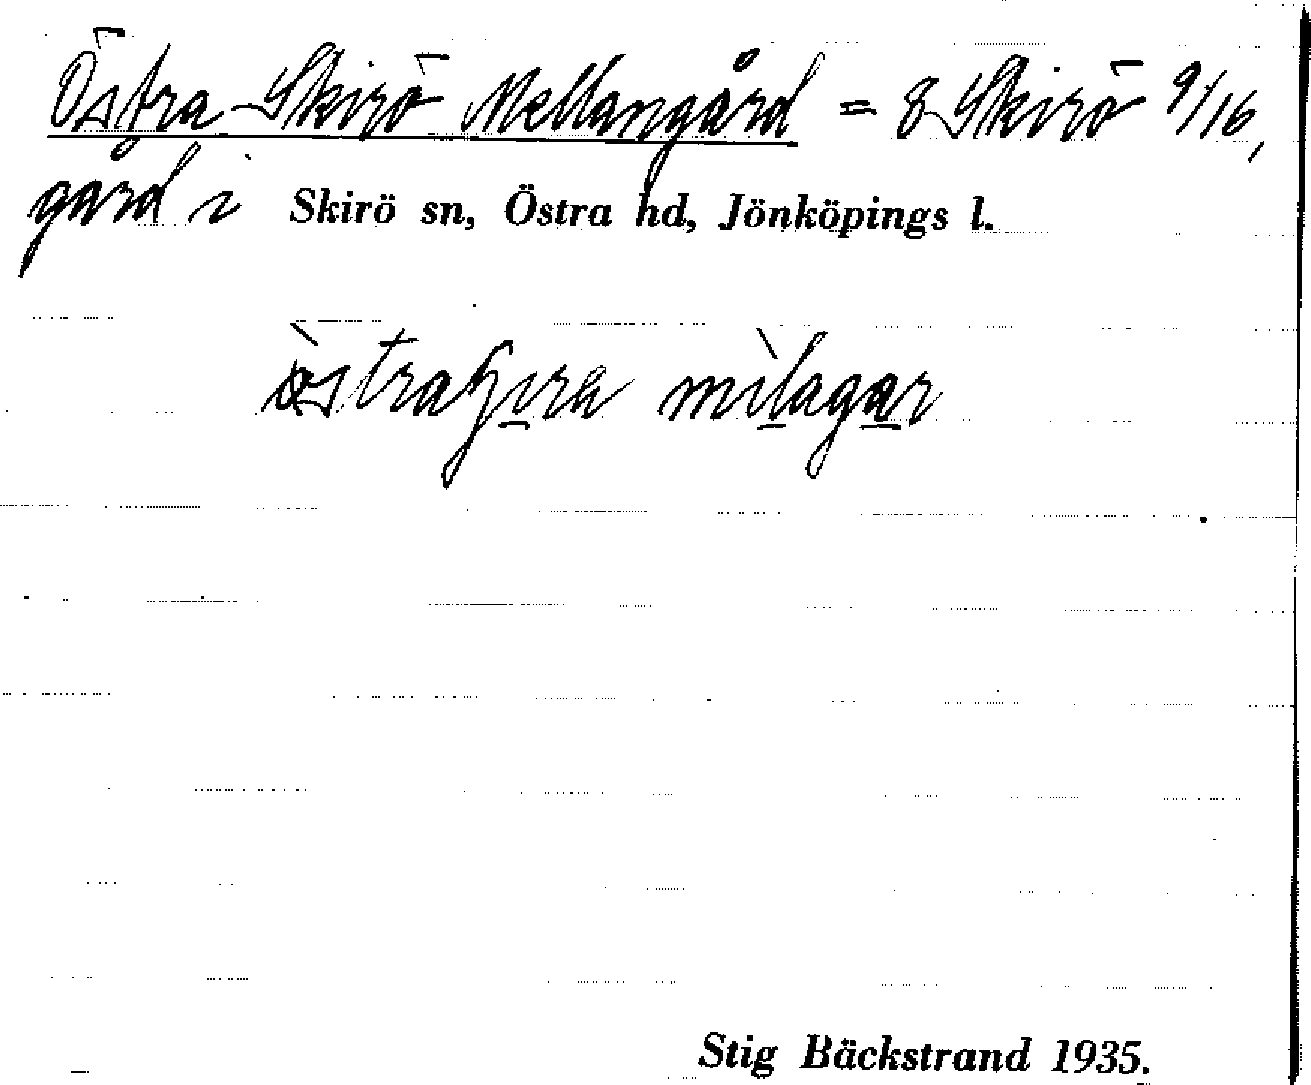 Östra Skirö Mellangård = 8 Skirö 9/16,
gård i Skirö sn, Östra hd, Jönköpings l.
mìlagar
Stig Bäckstrand 1935.